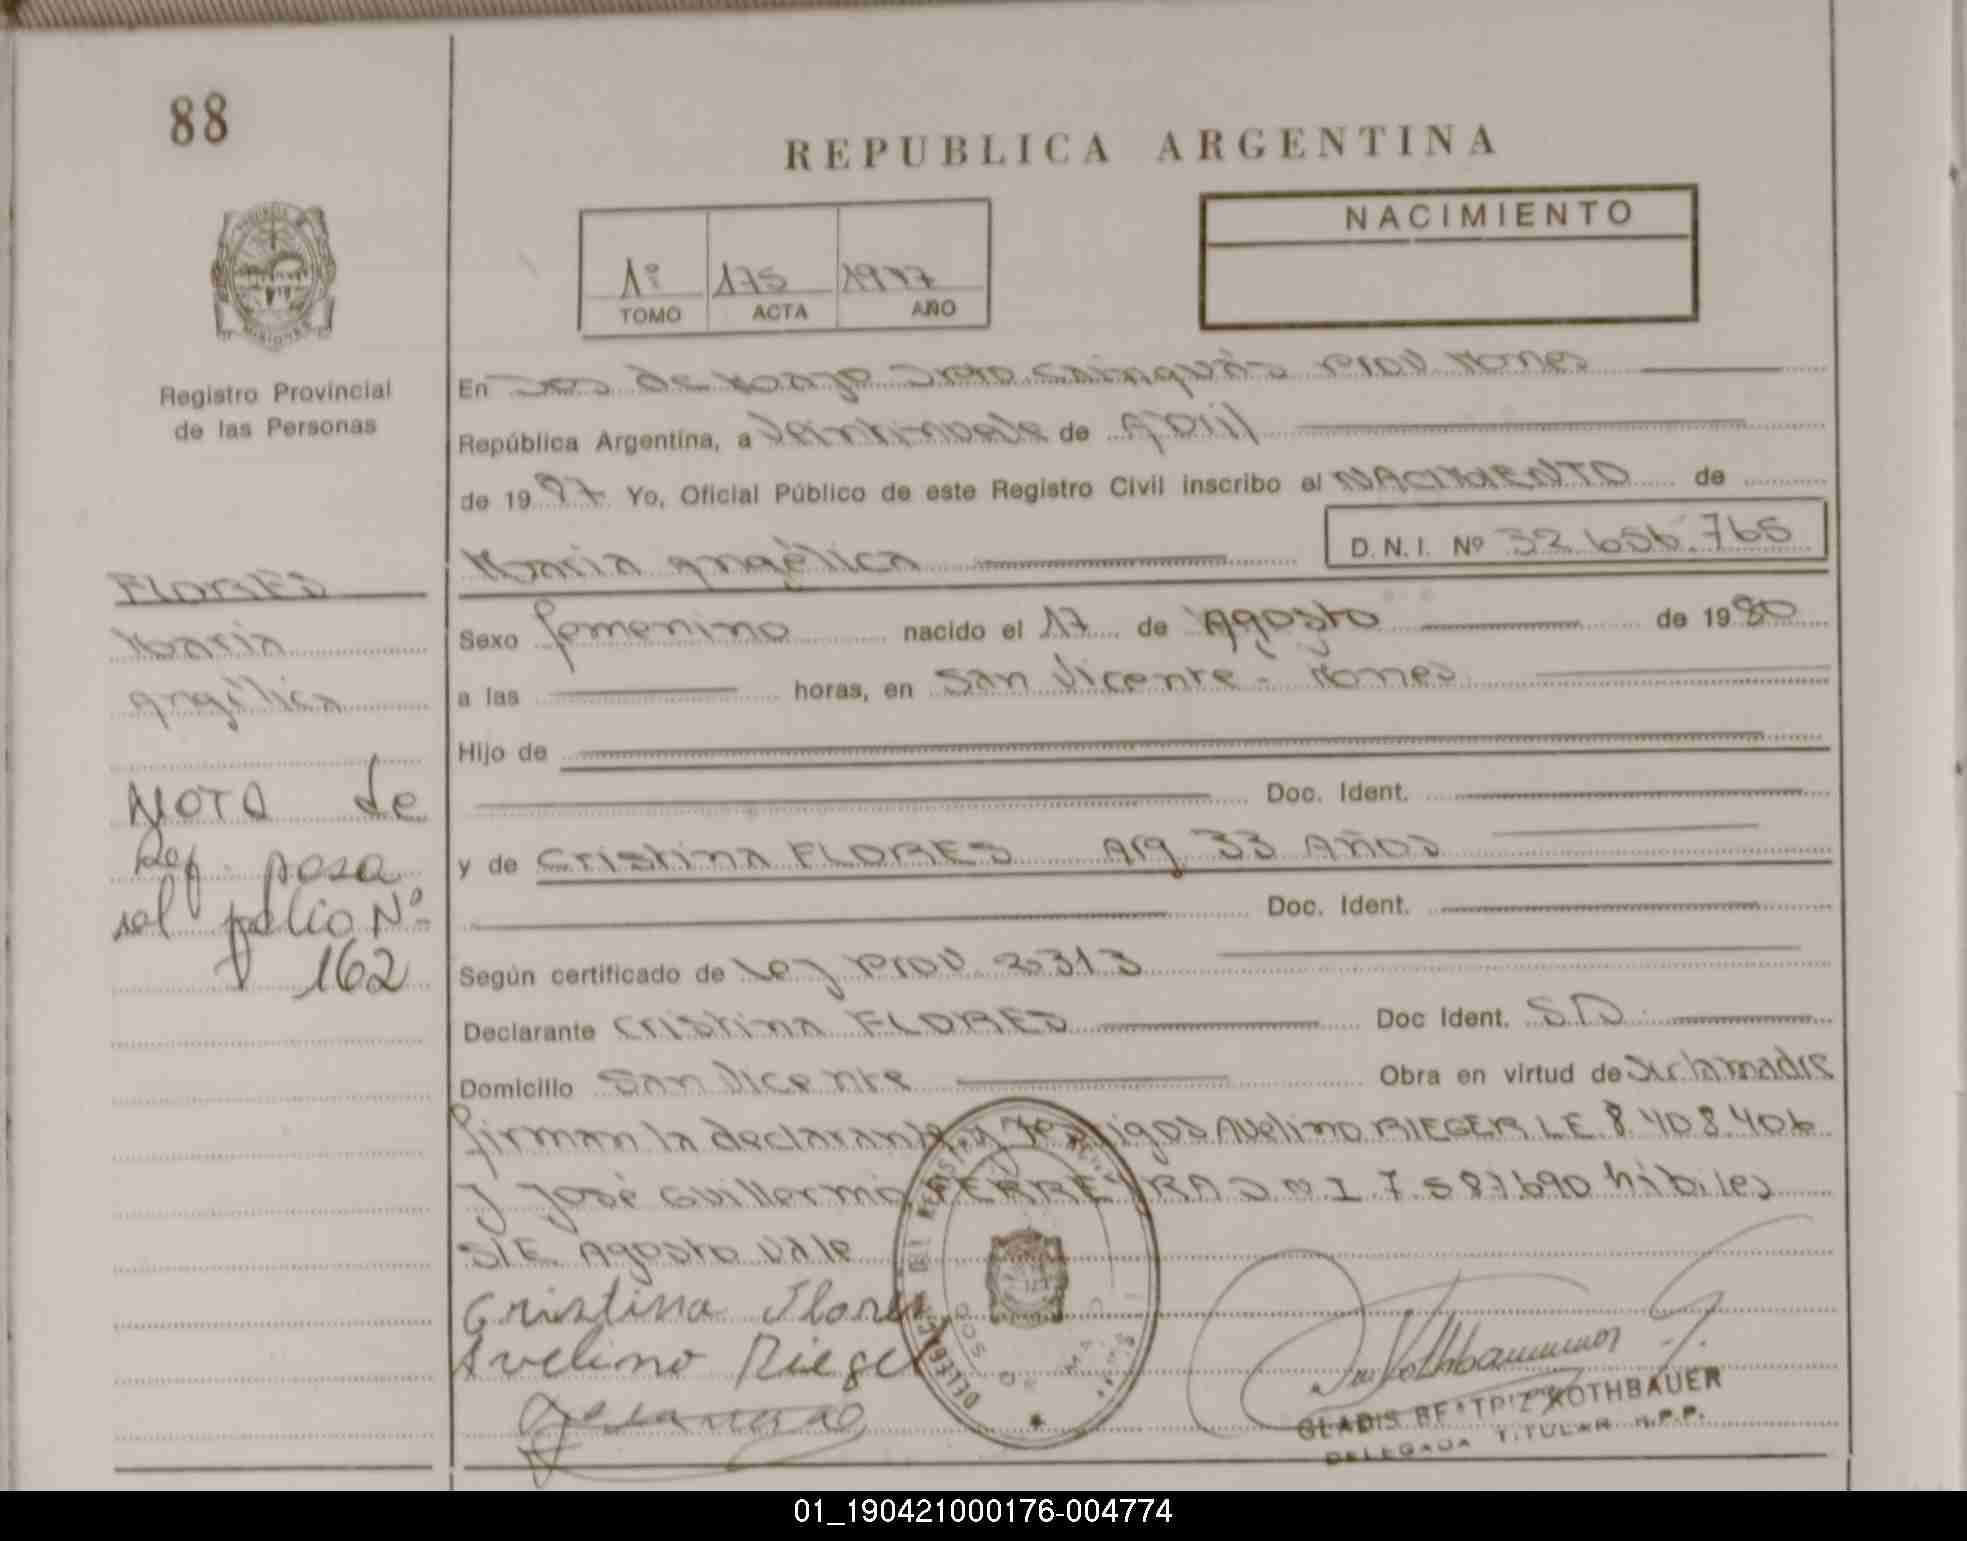 88
REPUBLICA ARGENTINA
NACIMIENTO
1º 175 1997
TOMO ACTA AÑO
Registro Provincial
de las Personas
En Dos de Mayo Dpto Cainguás Prov Mones
República Argentina, a Veintinueve de Abril
de 1997 Yo, Oficial Público de este Registro Civil inscribo el NACIMIENTO de
María Angélica D.N.I. Nº 32.656.765
FLORES
María
Angélica
Sexo femenino nacido el 17 de Agosto de 1980
a las horas, en San Vicente - Mones
Hijo de
Doc. Ident.
NOTA de
Ref. pasa
al folio Nº
162
y de Cristina FLORES Arg 33 Años
Doc. Ident.
Según certificado de Ley Prov 2313
Declarante Cristina FLORES Doc Ident. SD
Domicilio San Vicente Obra en virtud de ser la madre
firman la declarante y testigos Avelino RIEGER LE 8.408.406
y José Guillermo FERREYRA DNI 7.587.690 hábiles
S/E Agosto Vale
Cristina Flores
Avelino Rieger
GLADIS BEATRIZ ROTHBAUER
DELEGADA TITULAR R.P.P.
01_190421000176-004774